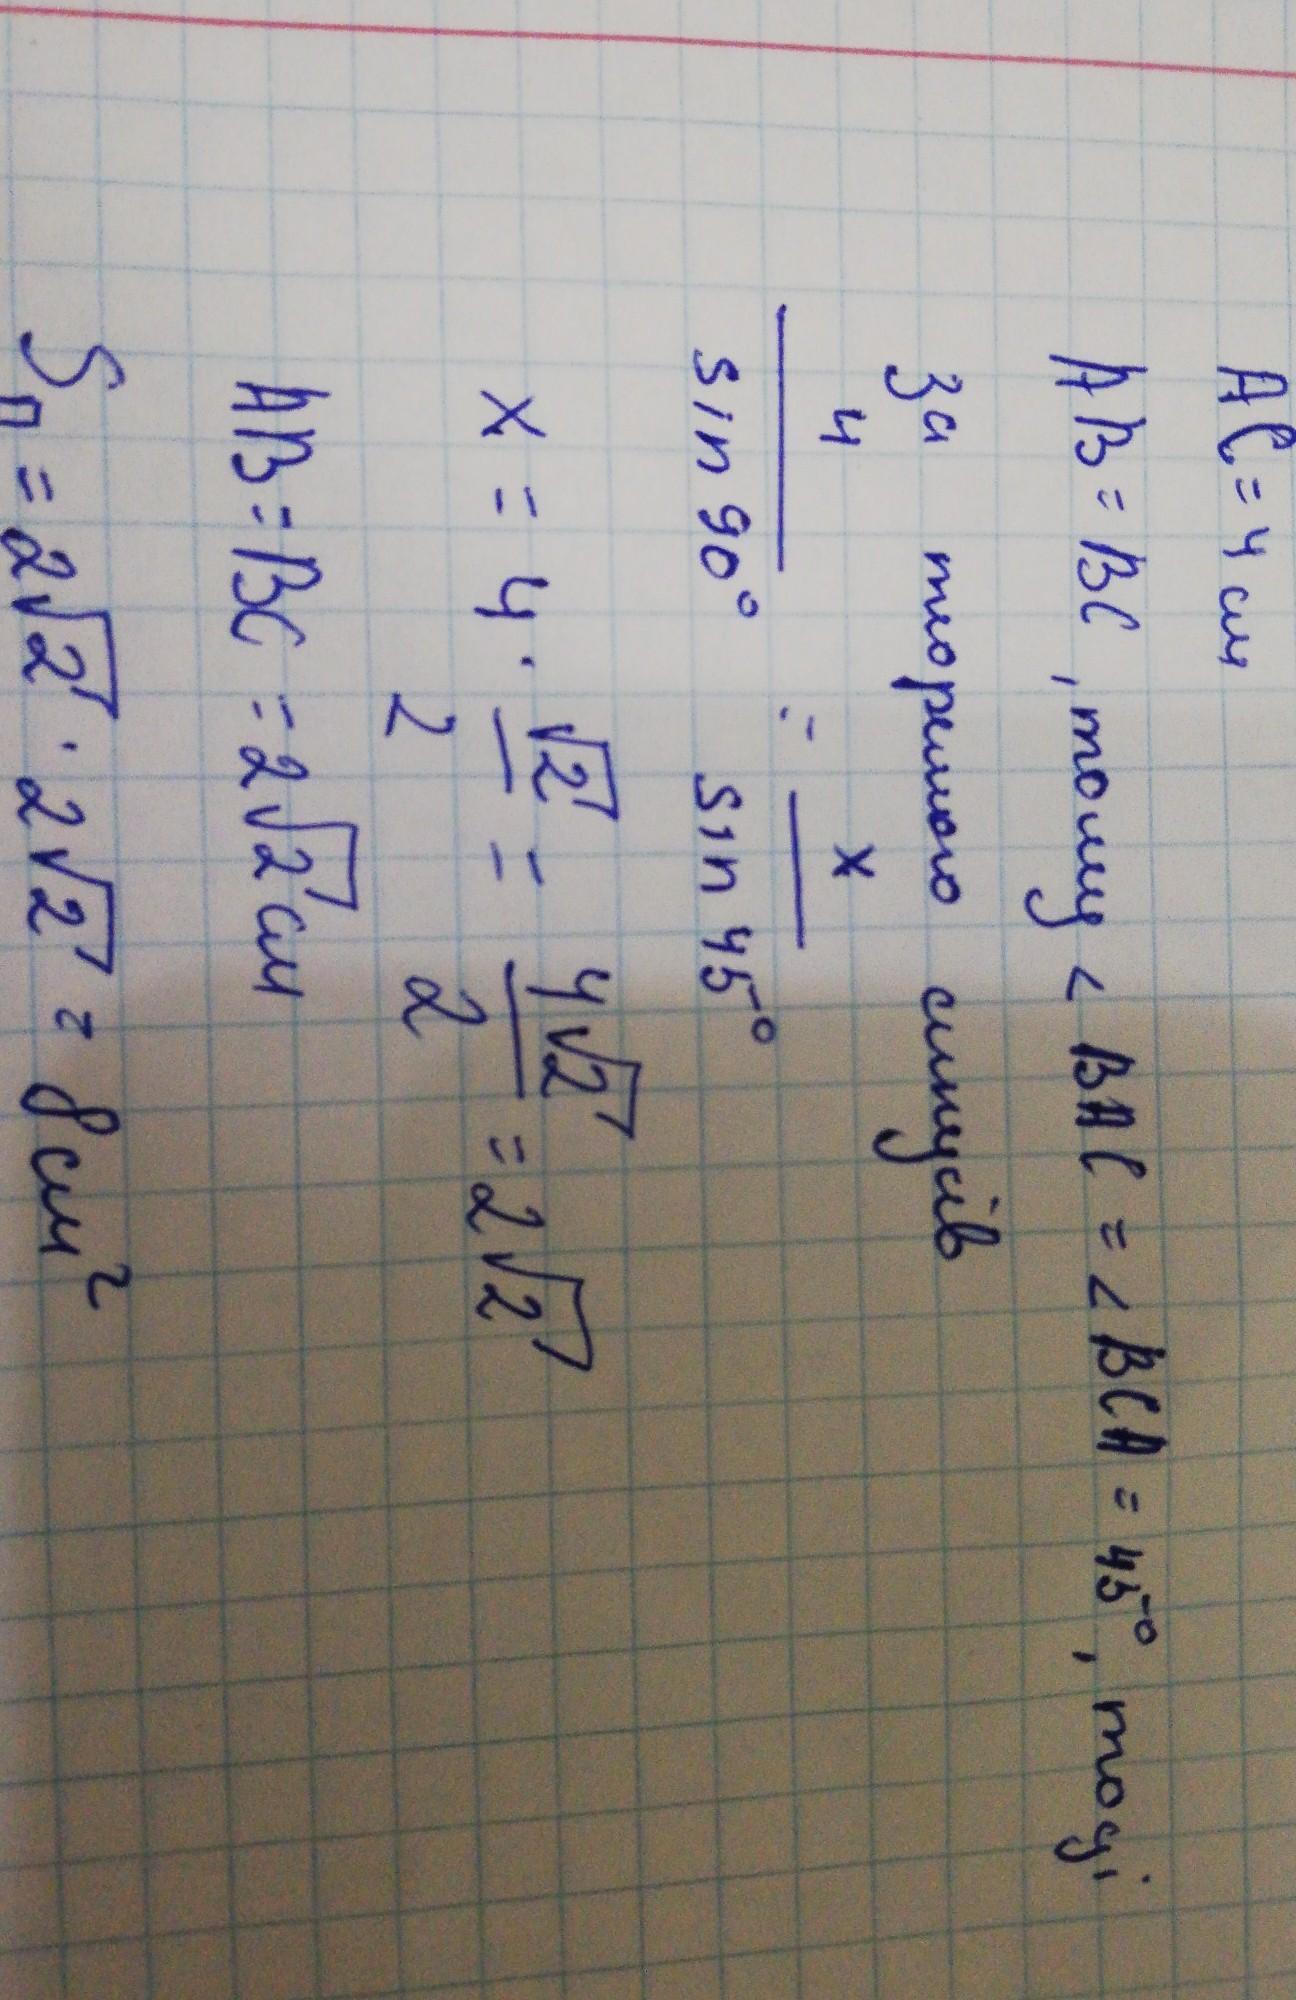 AC = 4 см
AB = BC, тому < BAC = < BCA = 45°, тоді
за теоремою синусів
4/sin 90° = x/sin 45°
x = 4 · √2/2 = 4√2/2 = 2√2
AB = BC = 2√2 см
Sп = 2√2 · 2√2 = 8 см²